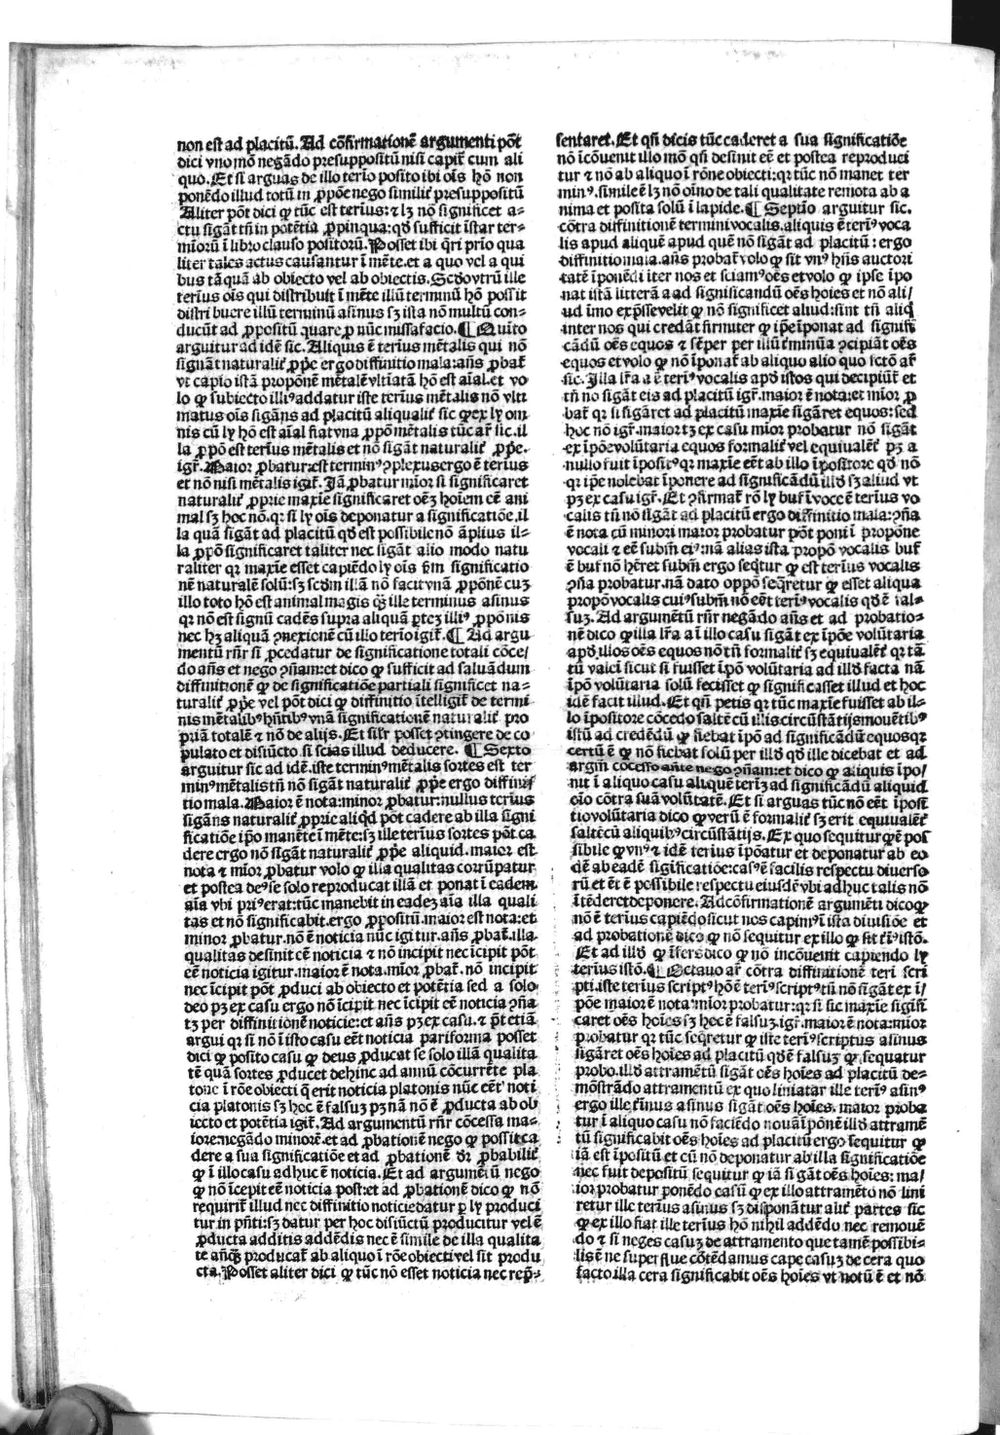 non est ad placitū. Ad cōfirmationē argumenti pōt
dici vno mō negādo presuppositū nisi capiť cum ali
quo. Et si arguas de illo terīo posito ibi oīs hō non
ponēdo illud totū in ꝓpōne nego similiť presuppositū
Aliter pōt dici ꝙ tūc est terīus: ⁊ lꝫ nō significet a-
ctu sigāt tñ in potētia ꝓpinqua: qđ sufficit īstar ter-
mīorū ī libro clauso positorū. Posset ibi q̄ri prīo qua
liter tales actus causantur ī mēte. et a quo vel a qui
bus tāquā ab obiecto vel ab obiectis. Scđo vtrū ille
terīus oīs qui distribuit ī mēte illū terminū hō possit
distribuere illū terminū asinus sꝫ ista nō multū con-
ducūt ad ꝓpositū quare ꝓ nūc missa facio. ¶ Quīto
arguitur ad idē sic. Aliquis ē terīus mētalis qui nō
signāt naturaliť ꝓpe ergo diffinitio mala: añs ꝓbať
vt capio istā proponē mētalē vltīatā hō est aīal. et vo
lo ꝙ subiecto illiꝰ addatur iste terīus mētalis nō vlti
matus oīs sigāns ad placitū aliqualiť sic ꝙ ex ly om
nis cū ly hō est aīal fiat vna ꝓpō mētalis tūc ar̄ sic. il
la ꝓpō est terīus mētalis et nō sigāt naturaliť ꝓpe.
igť. Maior ꝓbatur: est terminꝰ ꝯplexus ergo ē terīus
et nō nisi mētalis igiť. Jā ꝓbatur mīor si significaret
naturaliť ꝓprie maxīe significaret oēꝫ hoīem eē ani
mal sꝫ hoc nō. qꝛ si ly oīs deponatur a significatiōe. il
la quā sigāt ad placitū qđ est possibile nō āplius il-
la ꝓpō significaret taliter nec sigāt alio modo natu
raliter qꝛ maxīe esset capiēdo ly oīs ẜm significatio
nē naturalē solū: sꝫ scđm illā nō facit vnā ꝓpōnē cuꝫ
illo toto hō est animal magis q̄ꝫ ille terminus asinus
qꝛ nō est signū cadēs supra aliquā ꝑtcꝫ illiꝰ ꝓpōnis
nec hꝫ aliquā ꝯnexionē cū illo terīo igiť. ¶ Ad argu
mentū rn̄r si ꝓcedatur de significatione totali cōce/
do añs et nego ꝯñam: et dico ꝙ sufficit ad saluādum
diffinitionē ꝙ de significatiōe partiali significet na-
turaliť ꝓpe vel pōt dici ꝙ diffinitio ītelligiť de termi
nis mētalibꝰ hñtibꝰ vnā significationē naturaliť pro
priā totalē ⁊ nō de alijs. Et sisr posset ꝯtingere de co
pulato et disiūcto si scias illud deducere. ¶ Sexto
arguitur sic ad idē. iste terminꝰ mētalis sortes est ter
minꝰ mētalis tñ nō sigāt naturaliť ꝓpe ergo diffini/
tio mala. Maior ē nota: minor ꝓbatur: nullus terīus
sigāns naturaliť ꝓprie aliqđ pōt cadere ab illa signi
ficatiōe ip̄o manēte ī mēte: sꝫ ille terīus sortes pōt ca
dere ergo nō sigāt naturaliť ꝓpe aliquid. maior est
nota ⁊ mīor ꝓbatur volo ꝙ illa qualitas corrūpatur
et postea deꝰ se solo reproducat illā et ponat ī eadem
aīa vbi priꝰ erat: tūc manebit in eadeꝫ aīa illa quali
tas et nō significabit. ergo ꝓpositū. maior est nota: et
minor ꝓbatur. nō ē noticia nūc igitur. añs ꝓbať. illa
qualitas desinit eē noticia ⁊ nō incipit nec īcipit pōt
eē noticia igitur. maior ē nota. mīor ꝓbať. nō incipit
nec īcipit pōt ꝓduci ab obiecto et potētia sed a solo
deo pꝫ ex casu ergo nō īcipit nec īcipit eē noticia ꝯña
tꝫ per diffinitionē noticie: et añs pꝫ ex casu. ⁊ p̄t etiā
argui qꝛ si nō ī isto casu eēt noticia pariforma posset
dici ꝙ posito casu ꝙ deus ꝓducat se solo illā qualita
tē quā sortes ꝓducet dehinc ad annū cōcurrēte pla
tone ī rōe obiecti ꝙ erit noticia platonis nūc eēt noti
cia platonis sꝫ hoc ē falsuꝫ pꝫ nā nō ē ꝓducta ab ob
iecto et potētia igiť. Ad argumentū rn̄r cōcessa ma-
iore: negādo minorē. et ad ꝓbationē nego ꝙ possit ca
dere a sua significatiōe et ad ꝓbationē dr̄ ꝓbabiliť
ꝙ ī illo casu adhuc ē noticia. Et ad argumētū nego
ꝙ nō īcepit eē noticia post: et ad ꝓbationē dico ꝙ nō
requiriť illud nec diffinitio noticie datur ꝑ ly produci
tur in pn̄ti: sꝫ datur per hoc disiūctū producitur vel ē
ꝓducta additis addēdis nec ē simile de illa qualita
te añqꝫ producať ab aliquo ī rōe obiecti vel sit produ
cta. Posset aliter dici ꝙ tūc nō esset noticia nec rep̄-
sentaret. Et qñ dicis tūc caderet a sua significatiōe
nō īcōuenit illo mō qñ desinit eē et postea reproduci
tur ⁊ nō ab aliquo ī rōne obiecti: qꝛ tūc nō manet ter
minꝰ. simile ē lꝫ nō oīno de tali qualitate remota ab a
nima et posita solū ī lapide. ¶ Septīo arguitur sic.
cōtra diffinitionē termini vocalis. aliquis ē terīꝰ voca
lis apud aliquē apud quē nō sigāt ad placitū: ergo
diffinitio mala. añs probať volo ꝙ sit vnꝰ hñs auctori
tatē īponēdi īter nos et sciamꝰ oēs et volo ꝙ ipse īpo
nat istā litterā a ad significandū oēs hoīes et nō ali/
ud īmo exp̄sse velit ꝙ nō significet aliud: sint tñ aliq̄
inter nos qui credāt firmiter ꝙ ip̄e īponat ad signifi
cādū oēs equos ⁊ sēper per illū ť̄minū a ꝯcipiāt oēs
equos et volo ꝙ nō īponať ab aliquo alio quo fcō ar̄
sic. Illa lr̄a a ē terīꝰ vocalis apđ istos qui decipiūt et
tñ nō sigāt eis ad placitū igiť. maior ē nota: et mīor ꝓ
bať qꝛ si sigāret ad placitū maxīe sigāret equos: sed
hoc nō igiť. maior tꝫ ex casu mīor probatur nō sigāt
ex īpōe volūtaria equos formaliť vel equiualēť pꝫ a
nullo fuit īpositꝰ qꝛ maxīe eēt ab illo īpositore qđ nō
qꝛ ip̄e nolebat īponere ad significādū illđ sꝫ aliud vt
pꝫ ex casu igiť. Et ꝯfirmať rō ly buf ī voce ē terīus vo
calis tñ nō sigāt ad placitū ergo diffinitio mala: ꝯña
ē nota cū minori maior probatur pōt poni ī propōne
vocali ⁊ eē subm̄ eiꝰ: nā alias ista propō vocalis buf
ē buf nō hēret subm̄ ergo seq̄tur ꝙ est terīus vocalis
ꝯña probatur. nā dato oppō seq̄retur ꝙ esset aliqua
propō vocalis cuiꝰ subm̄ nō eēt terīꝰ vocalis qđ ē fal-
suꝫ. Ad argumētū rn̄r negādo añs et ad probatio-
nē dico ꝙ illa lr̄a a ī illo casu sigāt ex īpōe volūtaria
apđ illos oēs equos nō tñ formaliť sꝫ equiualēť qꝛ tā
tū valet sicut si fuisset īpō volūtaria ad illđ facta nā
īpō volūtaria solū fecisset ꝙ significasset illud et hoc
idē facit illud. Et qñ petis qꝛ tūc maxīe fuisset ab il-
lo īpositore cōcedo saltē cū illis circūstātijs mouētibꝰ
istū ad credēdū ꝙ fiebat īpō ad significādū equos qꝛ
certū ē ꝙ nō fiebat solū per illđ qđ ille dicebat et ad
argm̄ cōcesso añte nego ꝯñam: et dico ꝙ aliquis īpo/
nit ī aliquo casu aliquē terīꝫ ad significādū aliquid
oīo cōtra suā volūtatē. Et si arguas tūc nō eēt īposi
tio volūtaria dico ꝙ verū ē formaliť sꝫ erit equiualēť
saltē cū aliquibꝰ circūstātijs. Ex quo sequitur ꝙ ē pos
sibile ꝙ vnꝰ ⁊ idē terīus īpōatur et deponatur ab eo
dē ab eadē significatiōe: casꝰ ē facilis respectu diuerso
rū et ēt ē possibile respectu eiusdē vbi adhuc talis nō
ītēderet deponere. Ad cōfirmationē argumēti dico ꝙ
nō ē terīus capiēdo sicut nos capimꝰ ī ista diuisiōe et
ad probationē dico ꝙ nō sequitur ex illo ꝙ sit ť̄īꝰ istō.
Et ad illđ ꝙ īfers dico ꝙ nō incōuenit capiendo ly
terīus istō. ¶ Octauo ar̄ cōtra diffinitionē teri scri
pti. iste terīus scriptꝰ hō ē terīꝰ scriptꝰ tñ nō sigāt ex ī/
pōe maior ē nota: mīor probatur: qꝛ si sic maxīe signifi
caret oēs hoīes sꝫ hoc ē falsuꝫ. igť. maior ē nota: mīor
probatur qꝛ tūc seq̄retur ꝙ iste terīꝰ scriptus asinus
sigāret oēs hoīes ad placitū qđ ē falsuꝫ ꝙ sequatur
probo. illđ attramētū sigāt oēs hoīes ad placitū de-
mōstrādo attramētū ex quo liniatur ille terīꝰ asinꝰ
ergo ille ť̄inus asinus sigāt oēs hoīes. maior proba
tur ī aliquo casu nō faciēdo nouā īpōnē illđ attramē
tū significabit oēs hoīes ad placitū ergo sequitur ꝙ
iā est īpositū et cū nō deponatur ab illa significatiōe
nec fuit depositū sequitur ꝙ iā sigāt oēs hoīes: ma/
ior probatur ponēdo casū ꝙ ex illo attramēto nō lini
retur ille terīus asinus sꝫ disponātur aliť partes sic
ꝙ ex illo fiat ille terīus hō nihil addēdo nec remouē
do ⁊ si neges casuꝫ de attramento que tamē possibi-
lis ē ne superflue cōtēdamus cape casuꝫ de cera quo
facto illa cera significabit oēs hoīes vt notū ē et nō